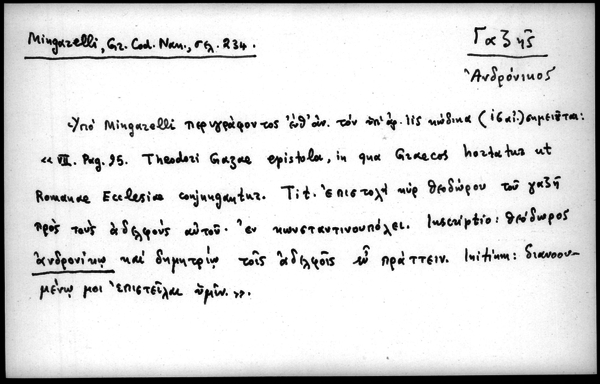 Mingarelli, Gr. Cod. Nan., σελ. 234.
Γαζῆς
Ἀνδρόνικος
Ὑπὸ Mingarelli περιγράφοντος ἐνθ' ἀν. τὸν ὑπ' ἀρ. κώδικα (ις' αἰ.) σημειοῦται:
« VII. Pag. 95. Theodori Gazae epistola, in qua Graecos hortatur ut
Romanae Ecclesiae conjungantur. Tit. ἐπιστολὴ κὺρ θεοδώρου τοῦ γαζῆ
πρὸς τοὺς ἀδελφοὺς αὐτοῦ· ἐν κωνσταντινουπόλει. Inscriptio: θεόδωρος
ἀνδρονίκῳ καὶ δημητρίῳ τοῖς ἀδελφοῖς εὖ πράττειν. Initium: διανοου-
μένῳ μοι ἐπιστεῖλαι ὑμῖν. ».